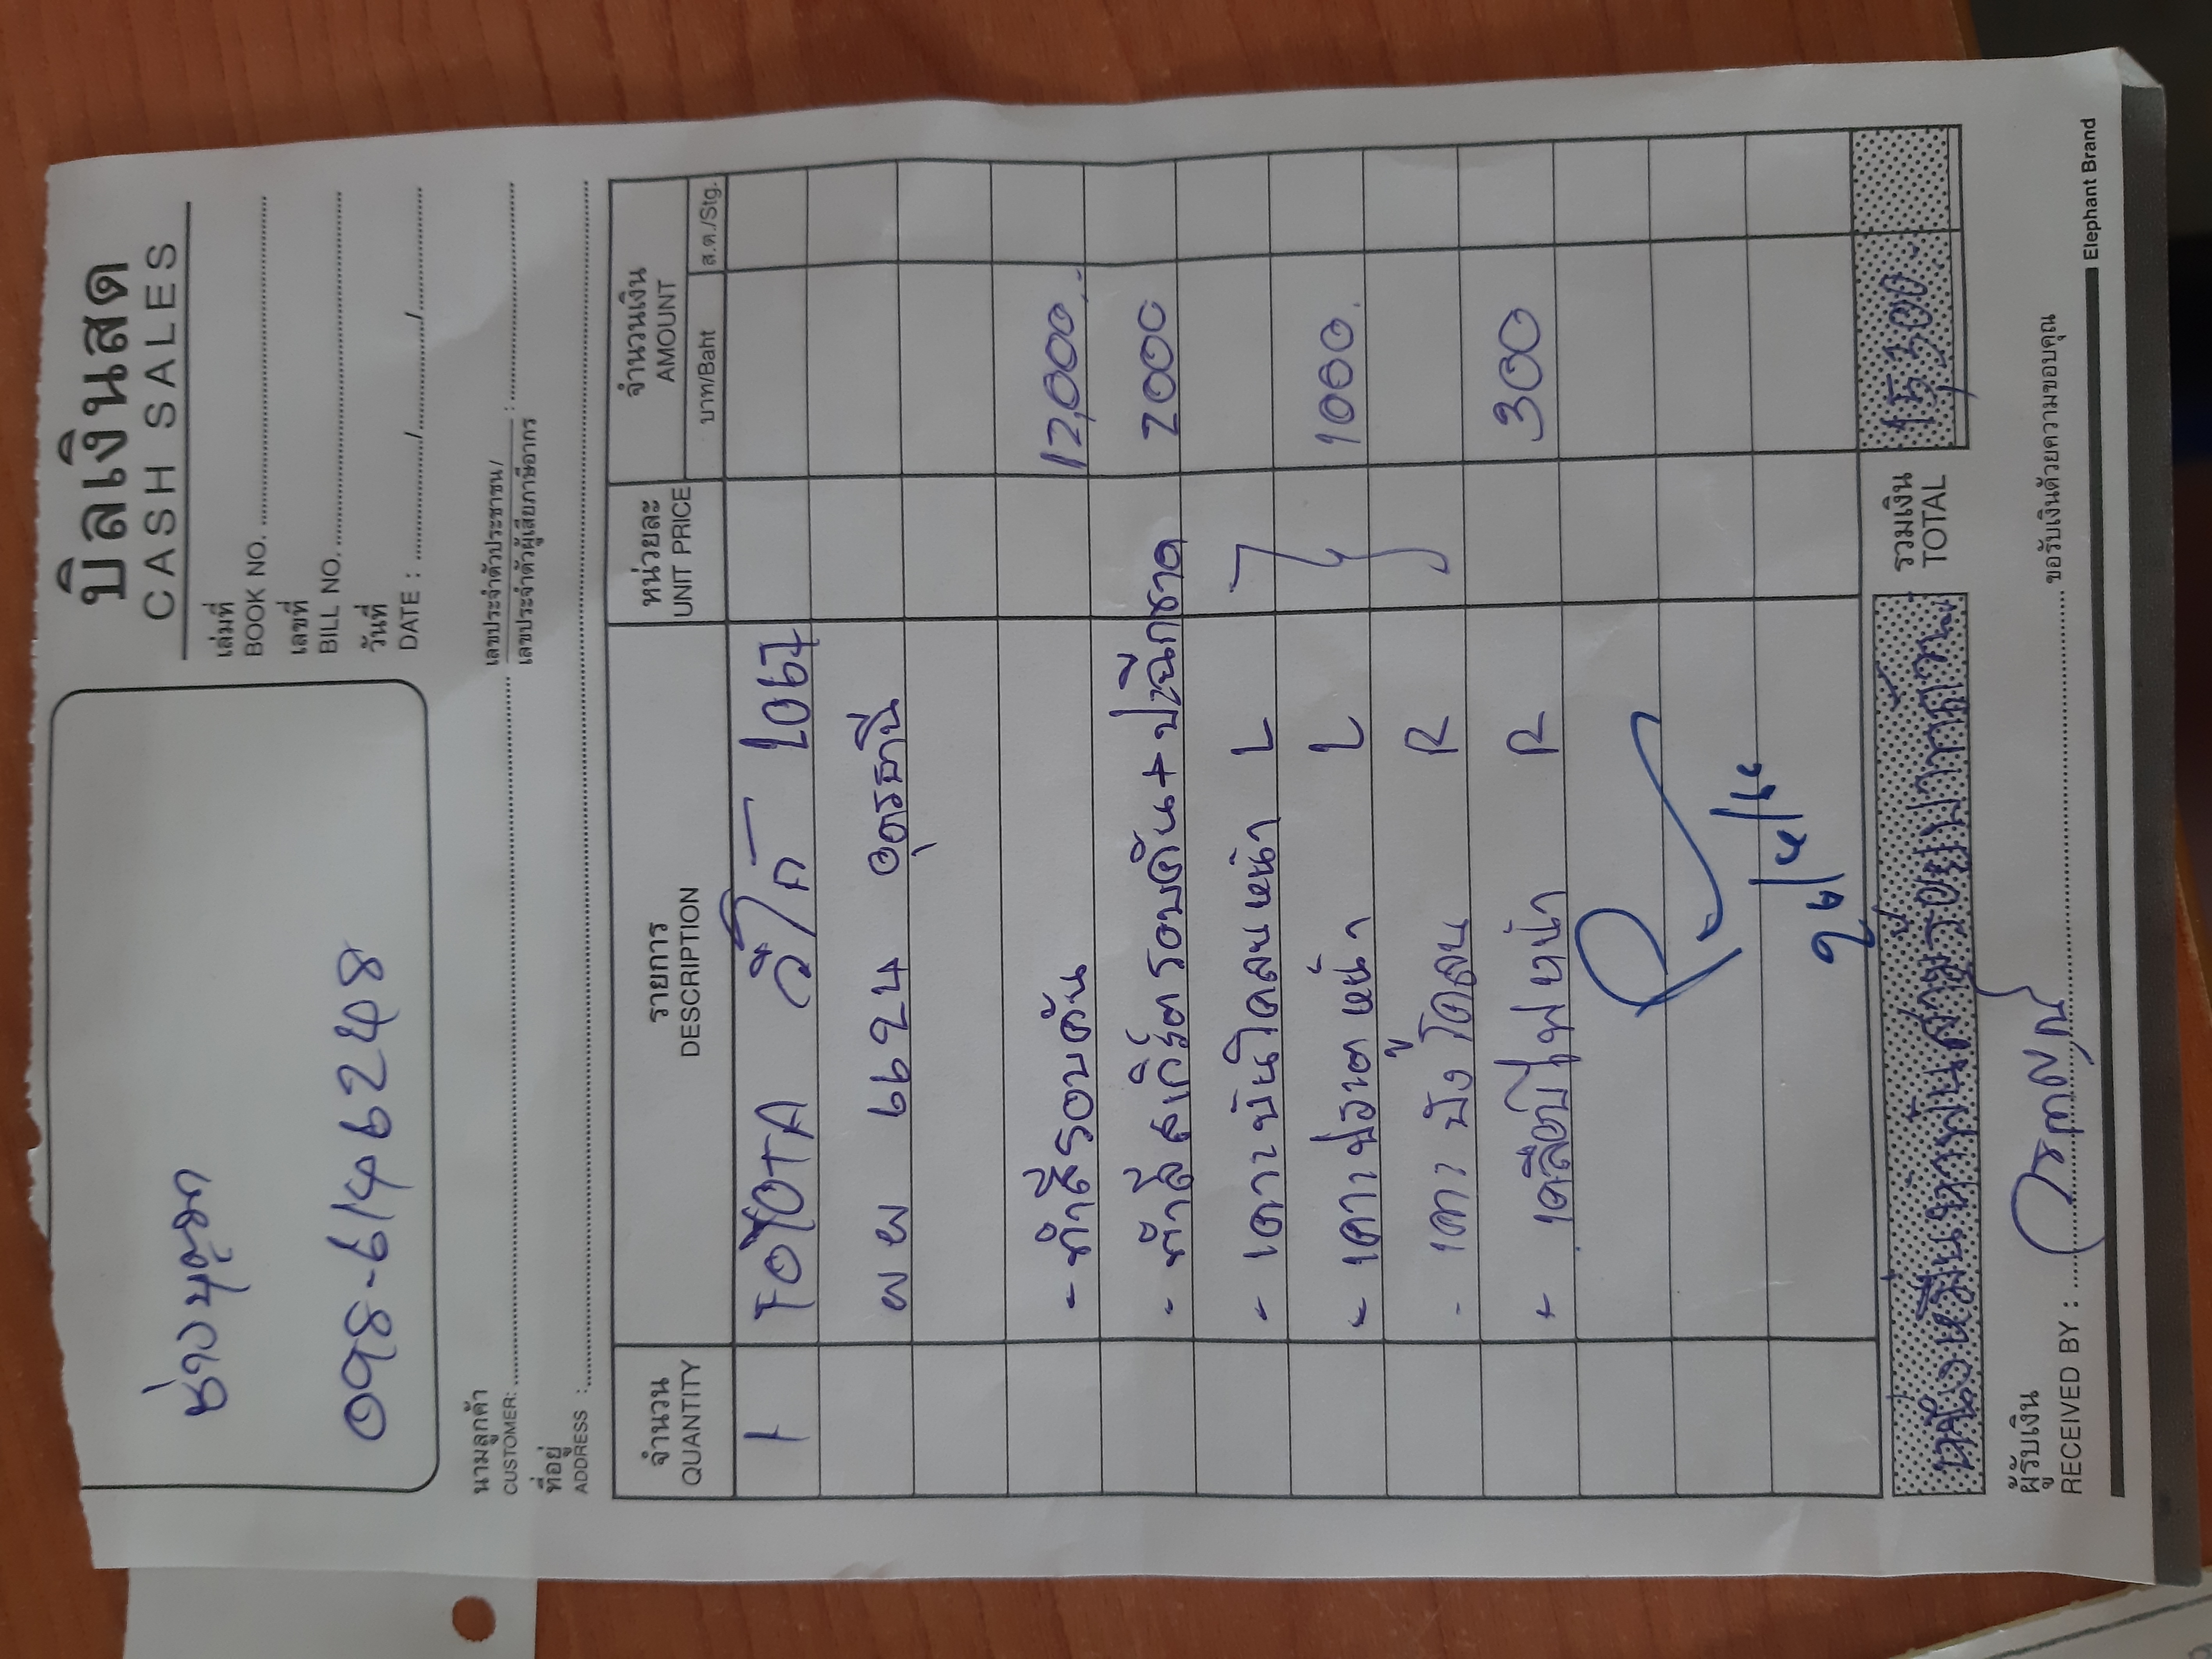 บิลเงินสด
CASH SALES
ช่างบุญมา
098-6146248
เล่มที่
BOOK NO.
เลขที่
BILL NO.
วันที่
DATE : / /
นามลูกค้า
CUSTOMER:
เลขประจำตัวประชาชน/
เลขประจำตัวผู้เสียภาษีอากร :
ที่อยู่
ADDRESS :
จำนวน รายการ หน่วยละ จำนวนเงิน
QUANTITY DESCRIPTION UNIT PRICE AMOUNT
บาท/Baht ส.ต./Stg.
1 TOYOTA วีโก้
ผผ 6624 อุดรธานี
- ทำสีรอบคัน 12,000.-
- ทำสีสเกิร์ตรอบคัน+ 2000
- เคาะบันไดลนหน้า L
- เคาะ หน้า L 1000.
- เคาะบังโคลน R
+ เคลือบไฟหน้า R 300
รวมเงิน
TOTAL 15,300.-
หนึ่งหมื่นห้าพันสามร้อยบาทถ้วน
ผู้รับเงิน
RECEIVED BY : ขอรับเงินด้วยความขอบคุณ
Elephant Brand